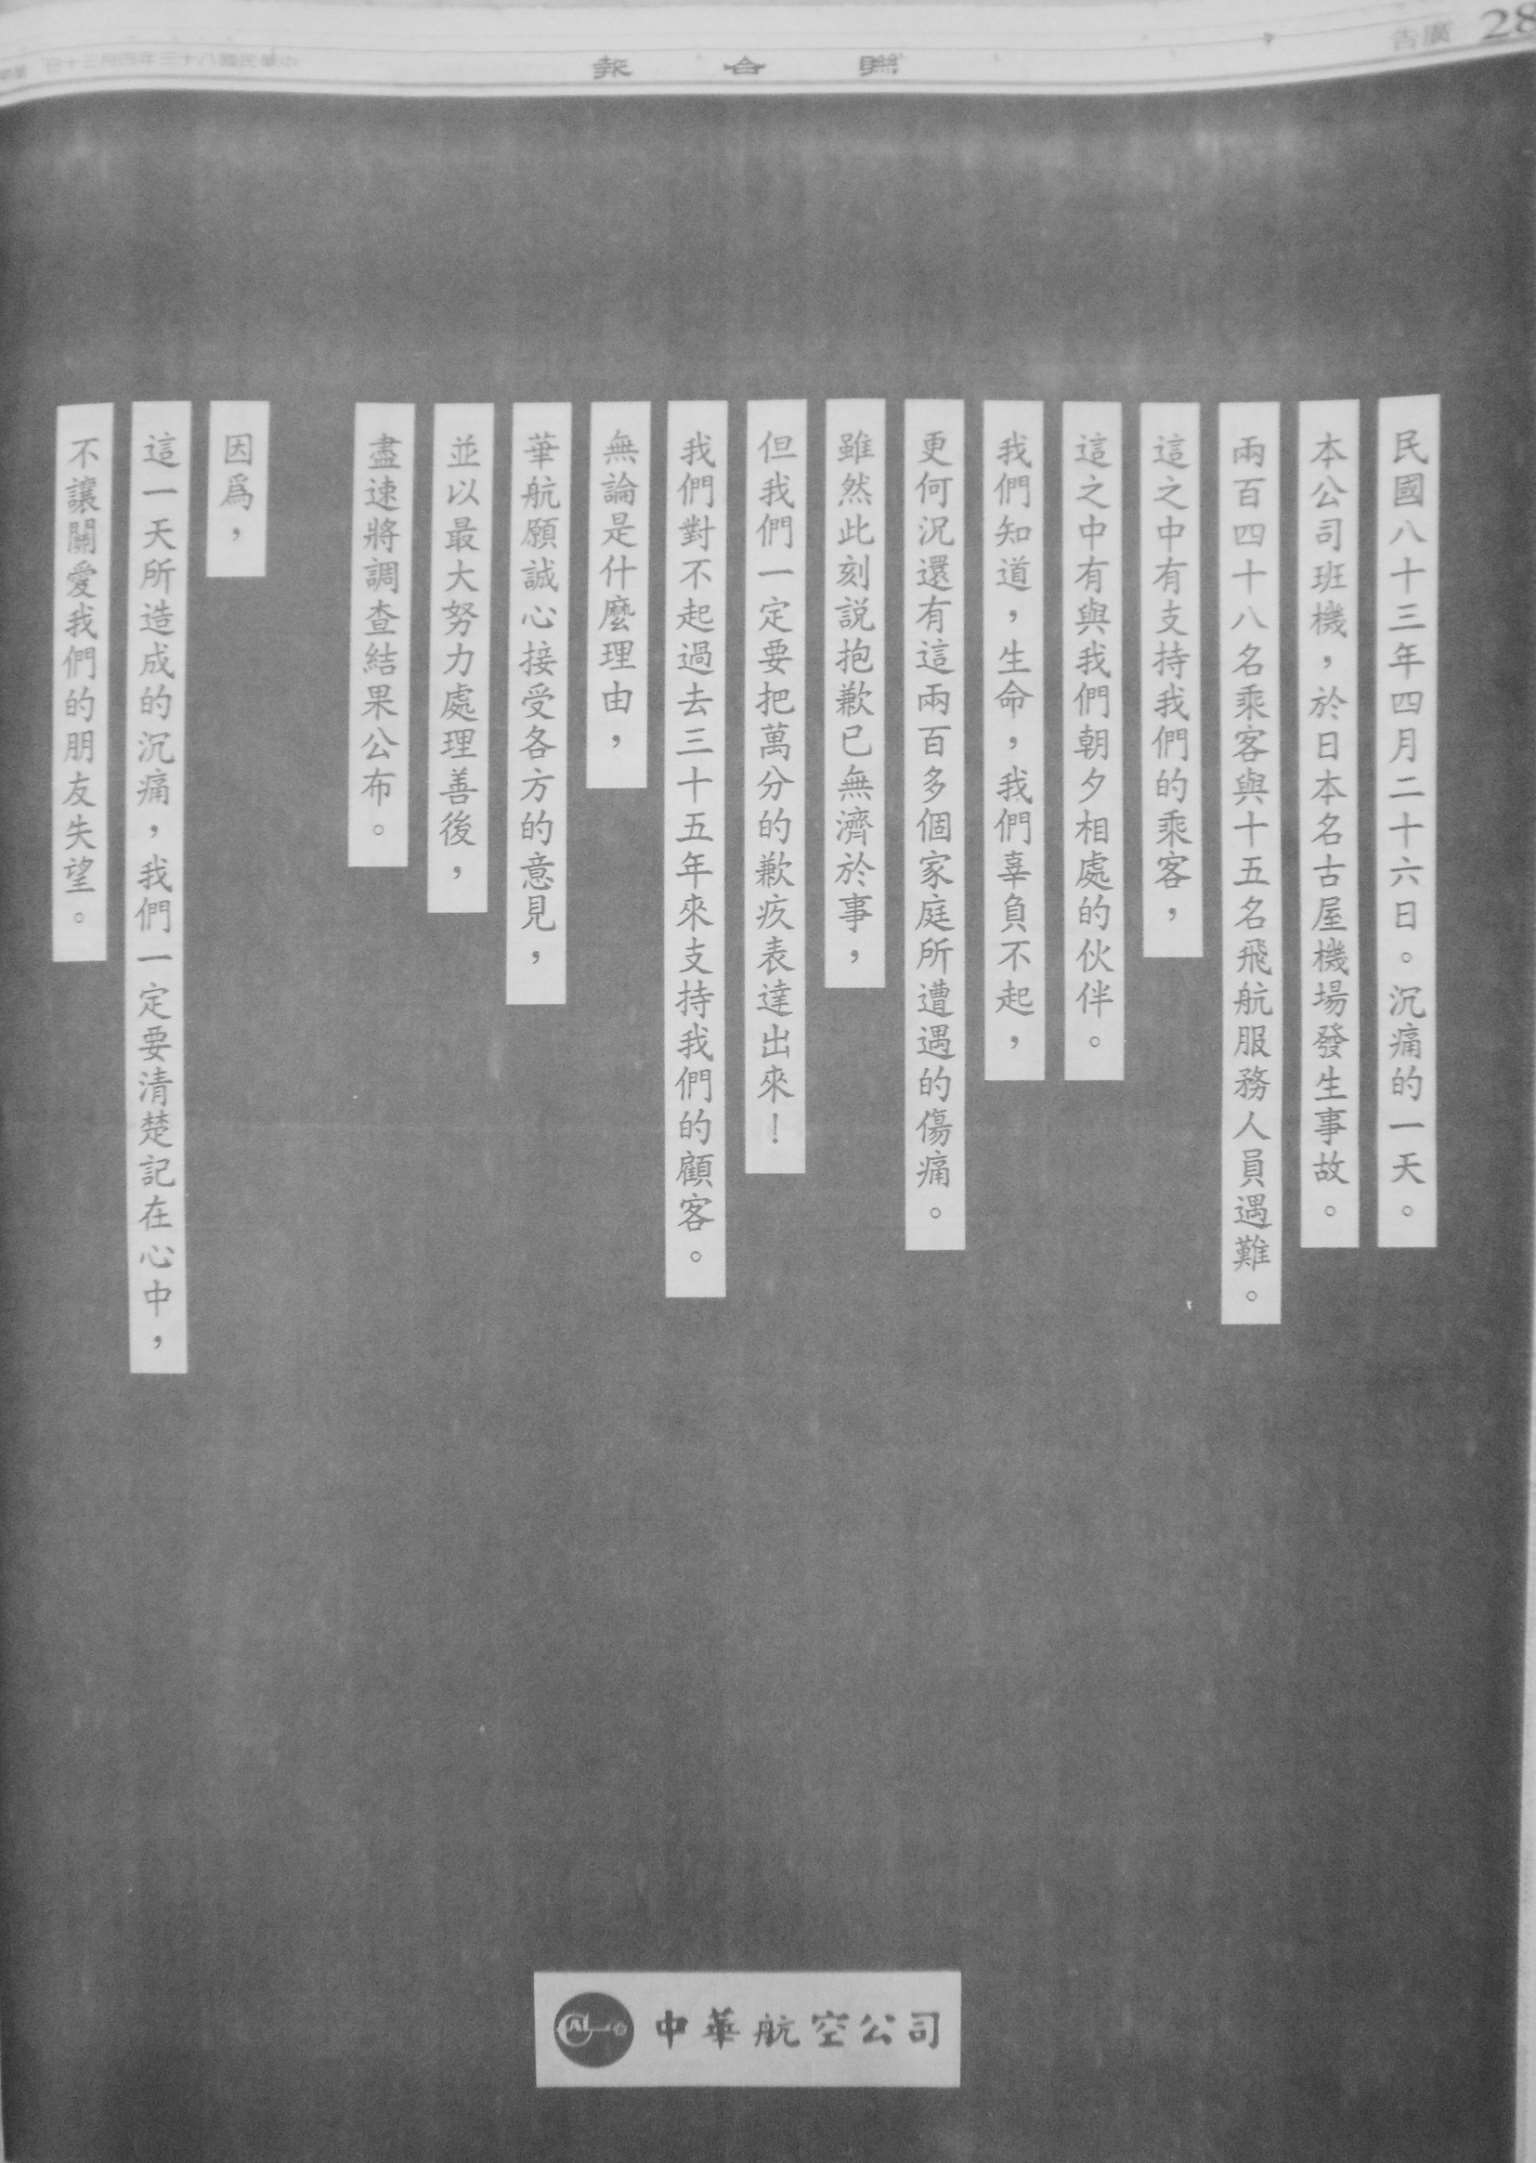 28
廣告
聯合報
中華民國八十三年四月三十日
民國八十三年四月二十六日。沉痛的一天。
本公司班機，於日本名古屋機場發生事故。
兩百四十八名乘客與十五名飛航服務人員遇難。
這之中有支持我們的乘客，
這之中有與我們朝夕相處的伙伴。
我們知道，生命，我們辜負不起，
更何況還有這兩百多個家庭所遭遇的傷痛。
雖然此刻説抱歉已無濟於事，
但我們一定要把萬分的歉疚表達出來！
我們對不起過去三十五年來支持我們的顧客。
無論是什麼理由，
華航願誠心接受各方的意見，
並以最大努力處理善後，
盡速將調查結果公布。
因爲，
這一天所造成的沉痛，我們一定要清楚記在心中，
不讓關愛我們的朋友失望。
CAL 中華航空公司